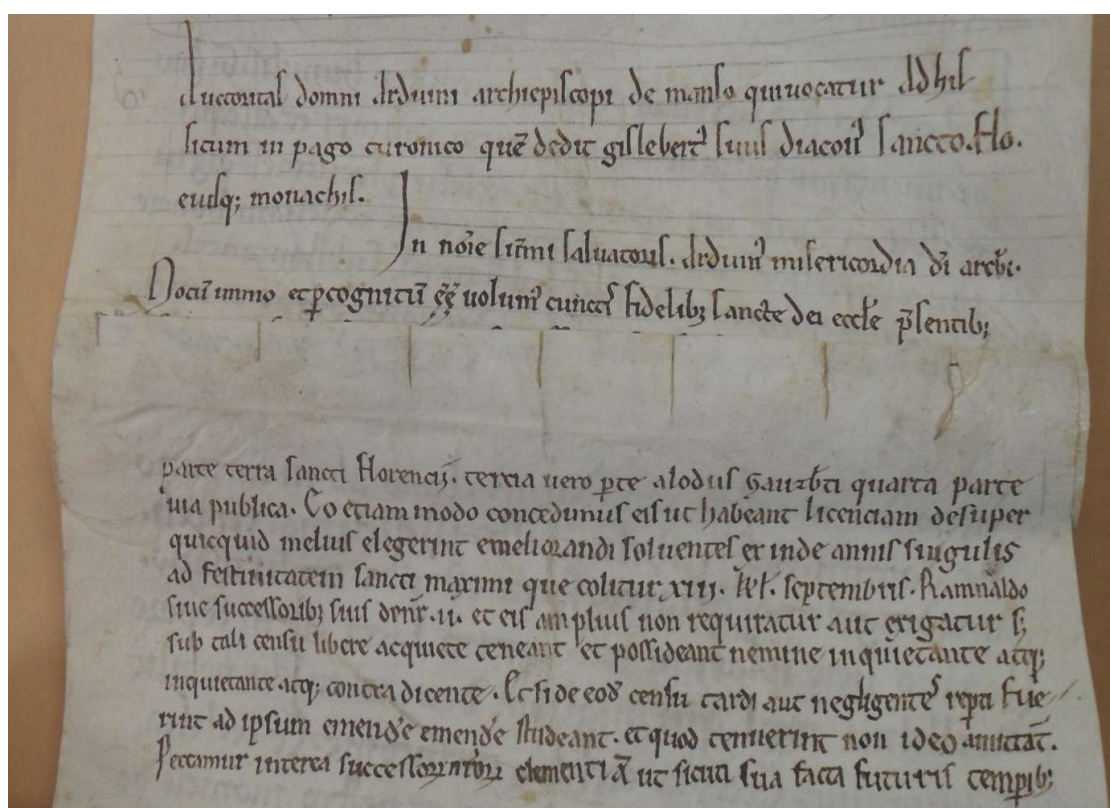 Auctoritas domni Arduini archiepiscopi de manso qui uocatur Adhil
sicum in pago turonico quē dedit gislebertꝰ suus diaconꝰ sancto .flo.
eiusq; monachis.
In noīe sūmi saluatoris. Arduinꝰ misericordia dī archi.
Notū immo et ꝑcognitū eē̄ uolumꝰ cunctis fidelibꝫ sancte dei eccƚe p̄sentibꝫ
parte terra sancti florencij. tercia uero ꝑte alodus Gauzƀti quarta parte
uia publica. Eo etiam modo concedimus eis ut habeant licenciam desuper
quicquid melius elegerint emeliorandi soluentes ex inde annis singulis
ad festiuitatem sancti maximi que colitur xiij. kƚ. septembris. Rainaldo
siue successoribꝫ suis dnr̄. ii. et eis amplius non requiratur aut exigatur sꝫ
sub tali censu libere acquiete teneant et possideant nemine inquietante atqꝫ
inquietante atqꝫ contra dicente. Et si de eod̄ censu tardi aut negligentes reꝑti fue
rint ad ipsum emendƌe emendƌe studeant. et quod tenuerint non ideo amittāt.
Precamur interea successoꝝ nr̄oꝝ clementiā ut sicuti sua facta futuris temꝑibꝫ